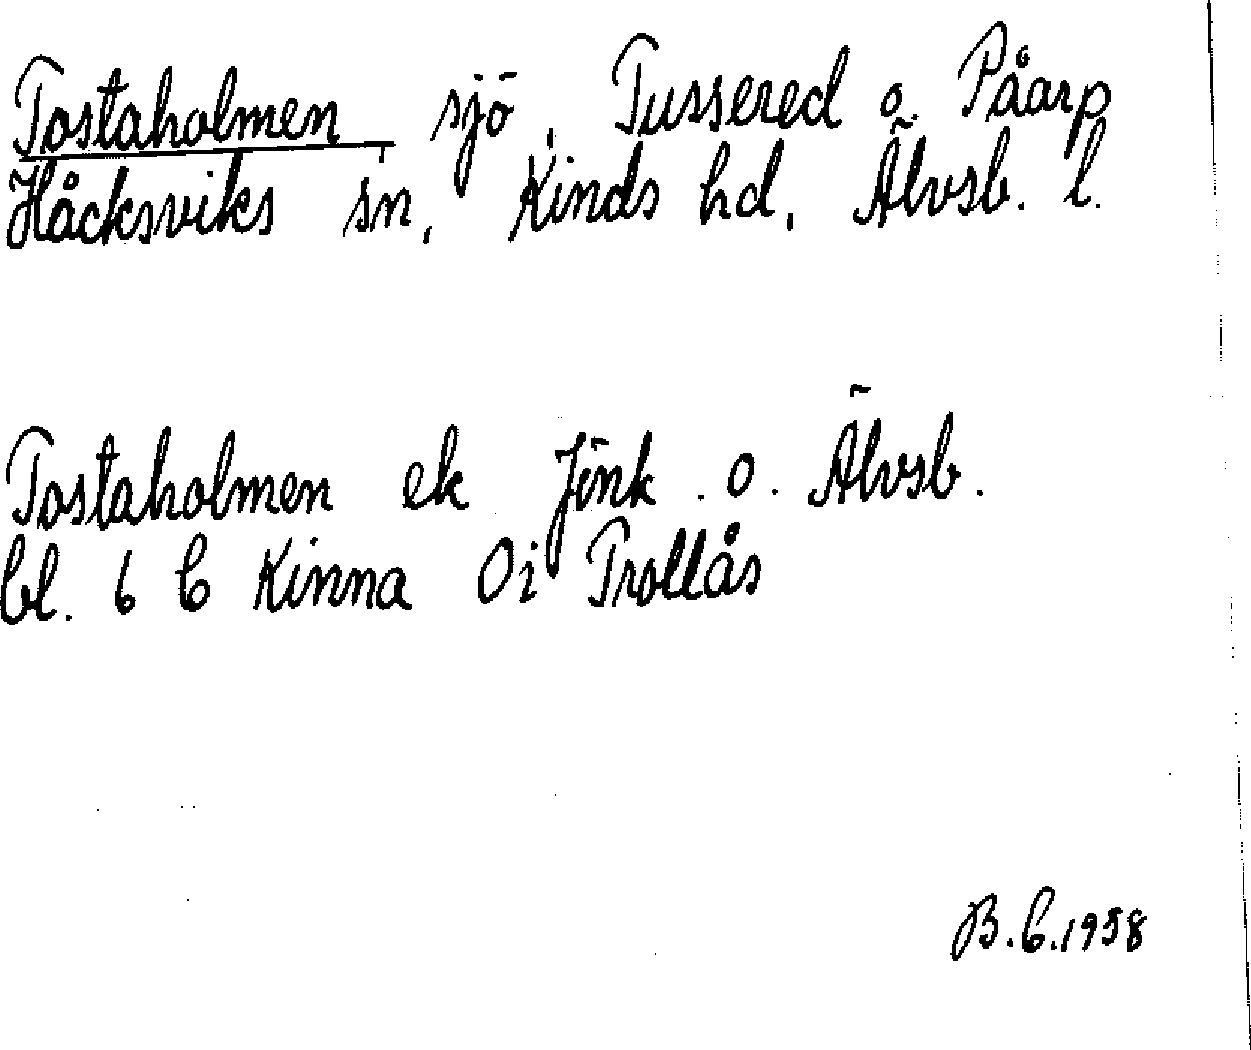 Tostaholmen, sjö, Tussered o. Påarp
Håcksviks sn, Kinds hd, Älvsb. l.
Tostaholmen ek Jönk. o. Älvsb.
bl. 6 C Kinna 0i Trollås
B.C.1958